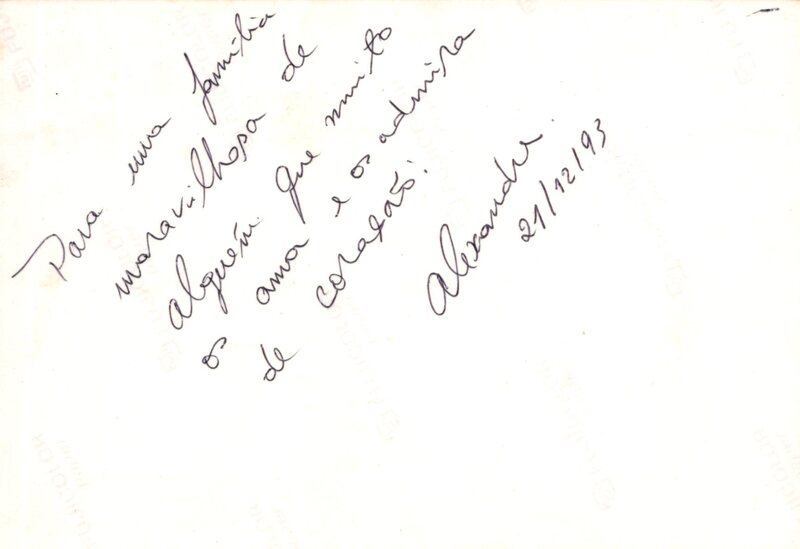 Para uma família
maravilhosa de
alguém que muito
os ama e os admira
de coração!
Alexandre.
21/12/93